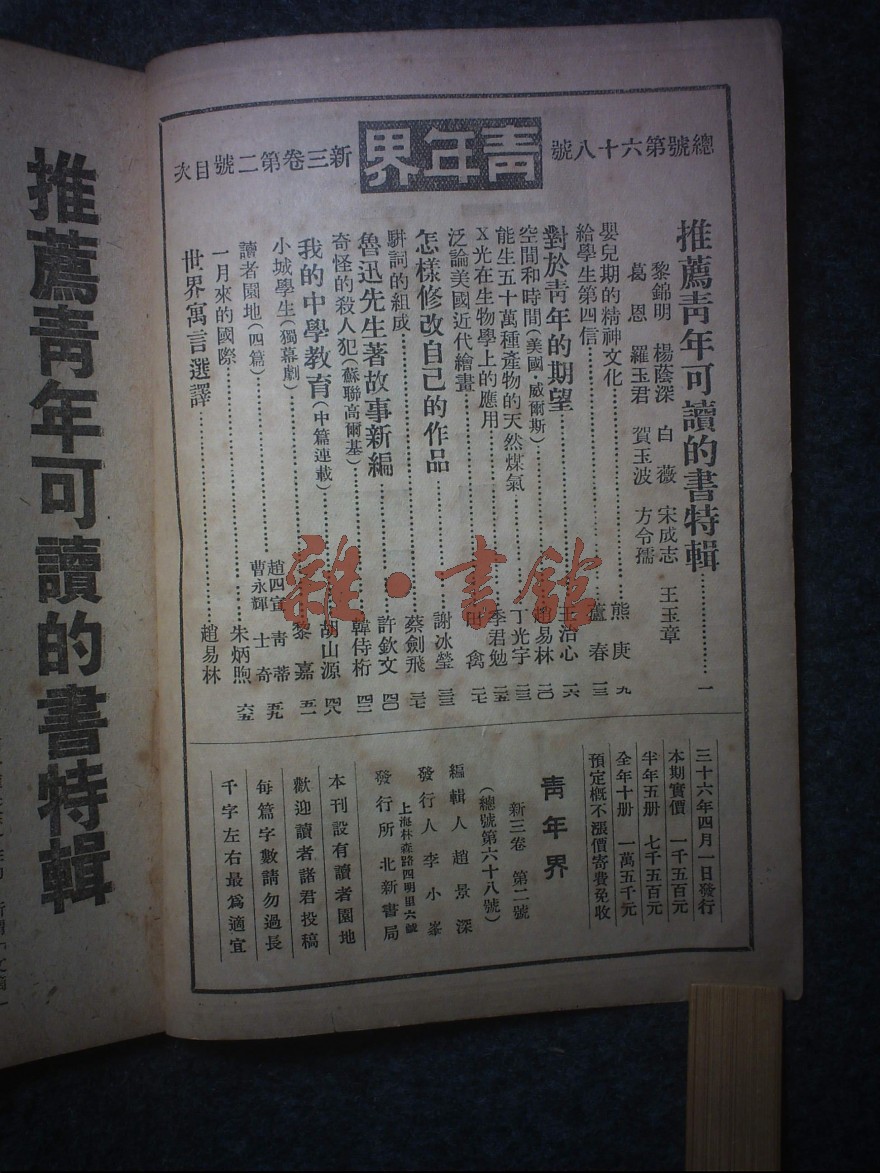 總號第六十八號
青年界
新三卷第二號目次
推薦青年可讀的書特輯……一
黎錦明 楊蔭深 白薇 宋成志 王玉章
葛恩 羅玉君 賀玉波 方令孺
嬰兒期的精神文化……熊庚 九
給學生第四信……蘆春 一三
對於青年的期望……王治心 一六
空間和時間(美國·威爾斯)……趙易林 二〇
能生五十萬種產物的天然煤氣……丁光宇 二三
X光在生物學上的應用……李君勉 二五
泛論美國近代繪畫……田禽 二七
怎樣修改自己的作品……謝冰瑩 三三
駢詞的組成……蔡劍飛 三七
魯迅先生著故事新編……許欽文 四〇
奇怪的殺人犯(蘇聯高爾基)……韓侍桁 四二
我的中學教育(中篇連載)……胡山源 四八
小城學生(獨幕劇)……黎嘉 五一
讀者園地(四篇)……趙四宣 青蒂 曹永輝 士奇 五九
一月來的國際……朱炳煦 六五
世界寓言選譯……趙易林
三十六年四月一日發行
本期實價 一千五百元
半年五册 七千五百元
全年十册 一萬五千元
預定概不漲價寄費免收
青年界
新三卷 第二號
(總號第六十八號)
編輯人 趙景深
發行人 李小峯
上海林森路四明里六號
發行所 北新書局
本刊設有讀者園地
歡迎讀者諸君投稿
每篇字數請勿過長
千字左右最爲適宜
推薦青年可讀的書特輯
雜·書館